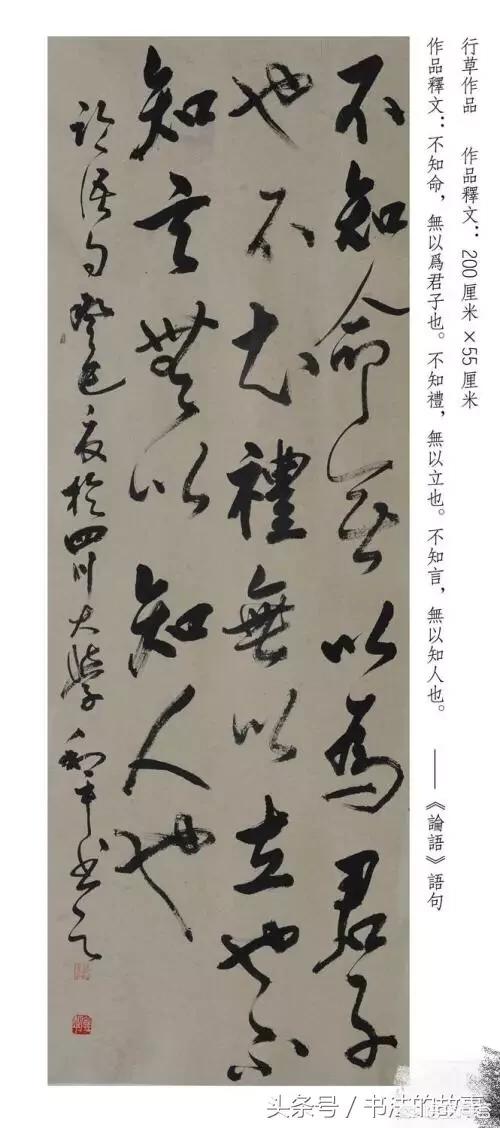 行草作品 作品釋文：200厘米×55厘米
作品釋文：不知命，無以爲君子也。不知禮，無以立也。不知言，無以知人也。 ——《論語》語句
不知命無以為君子
也不知禮無以立也不
知言無以知人也
论语句癸巳夏於四川大學和平书之
头条号 / 书法的故事